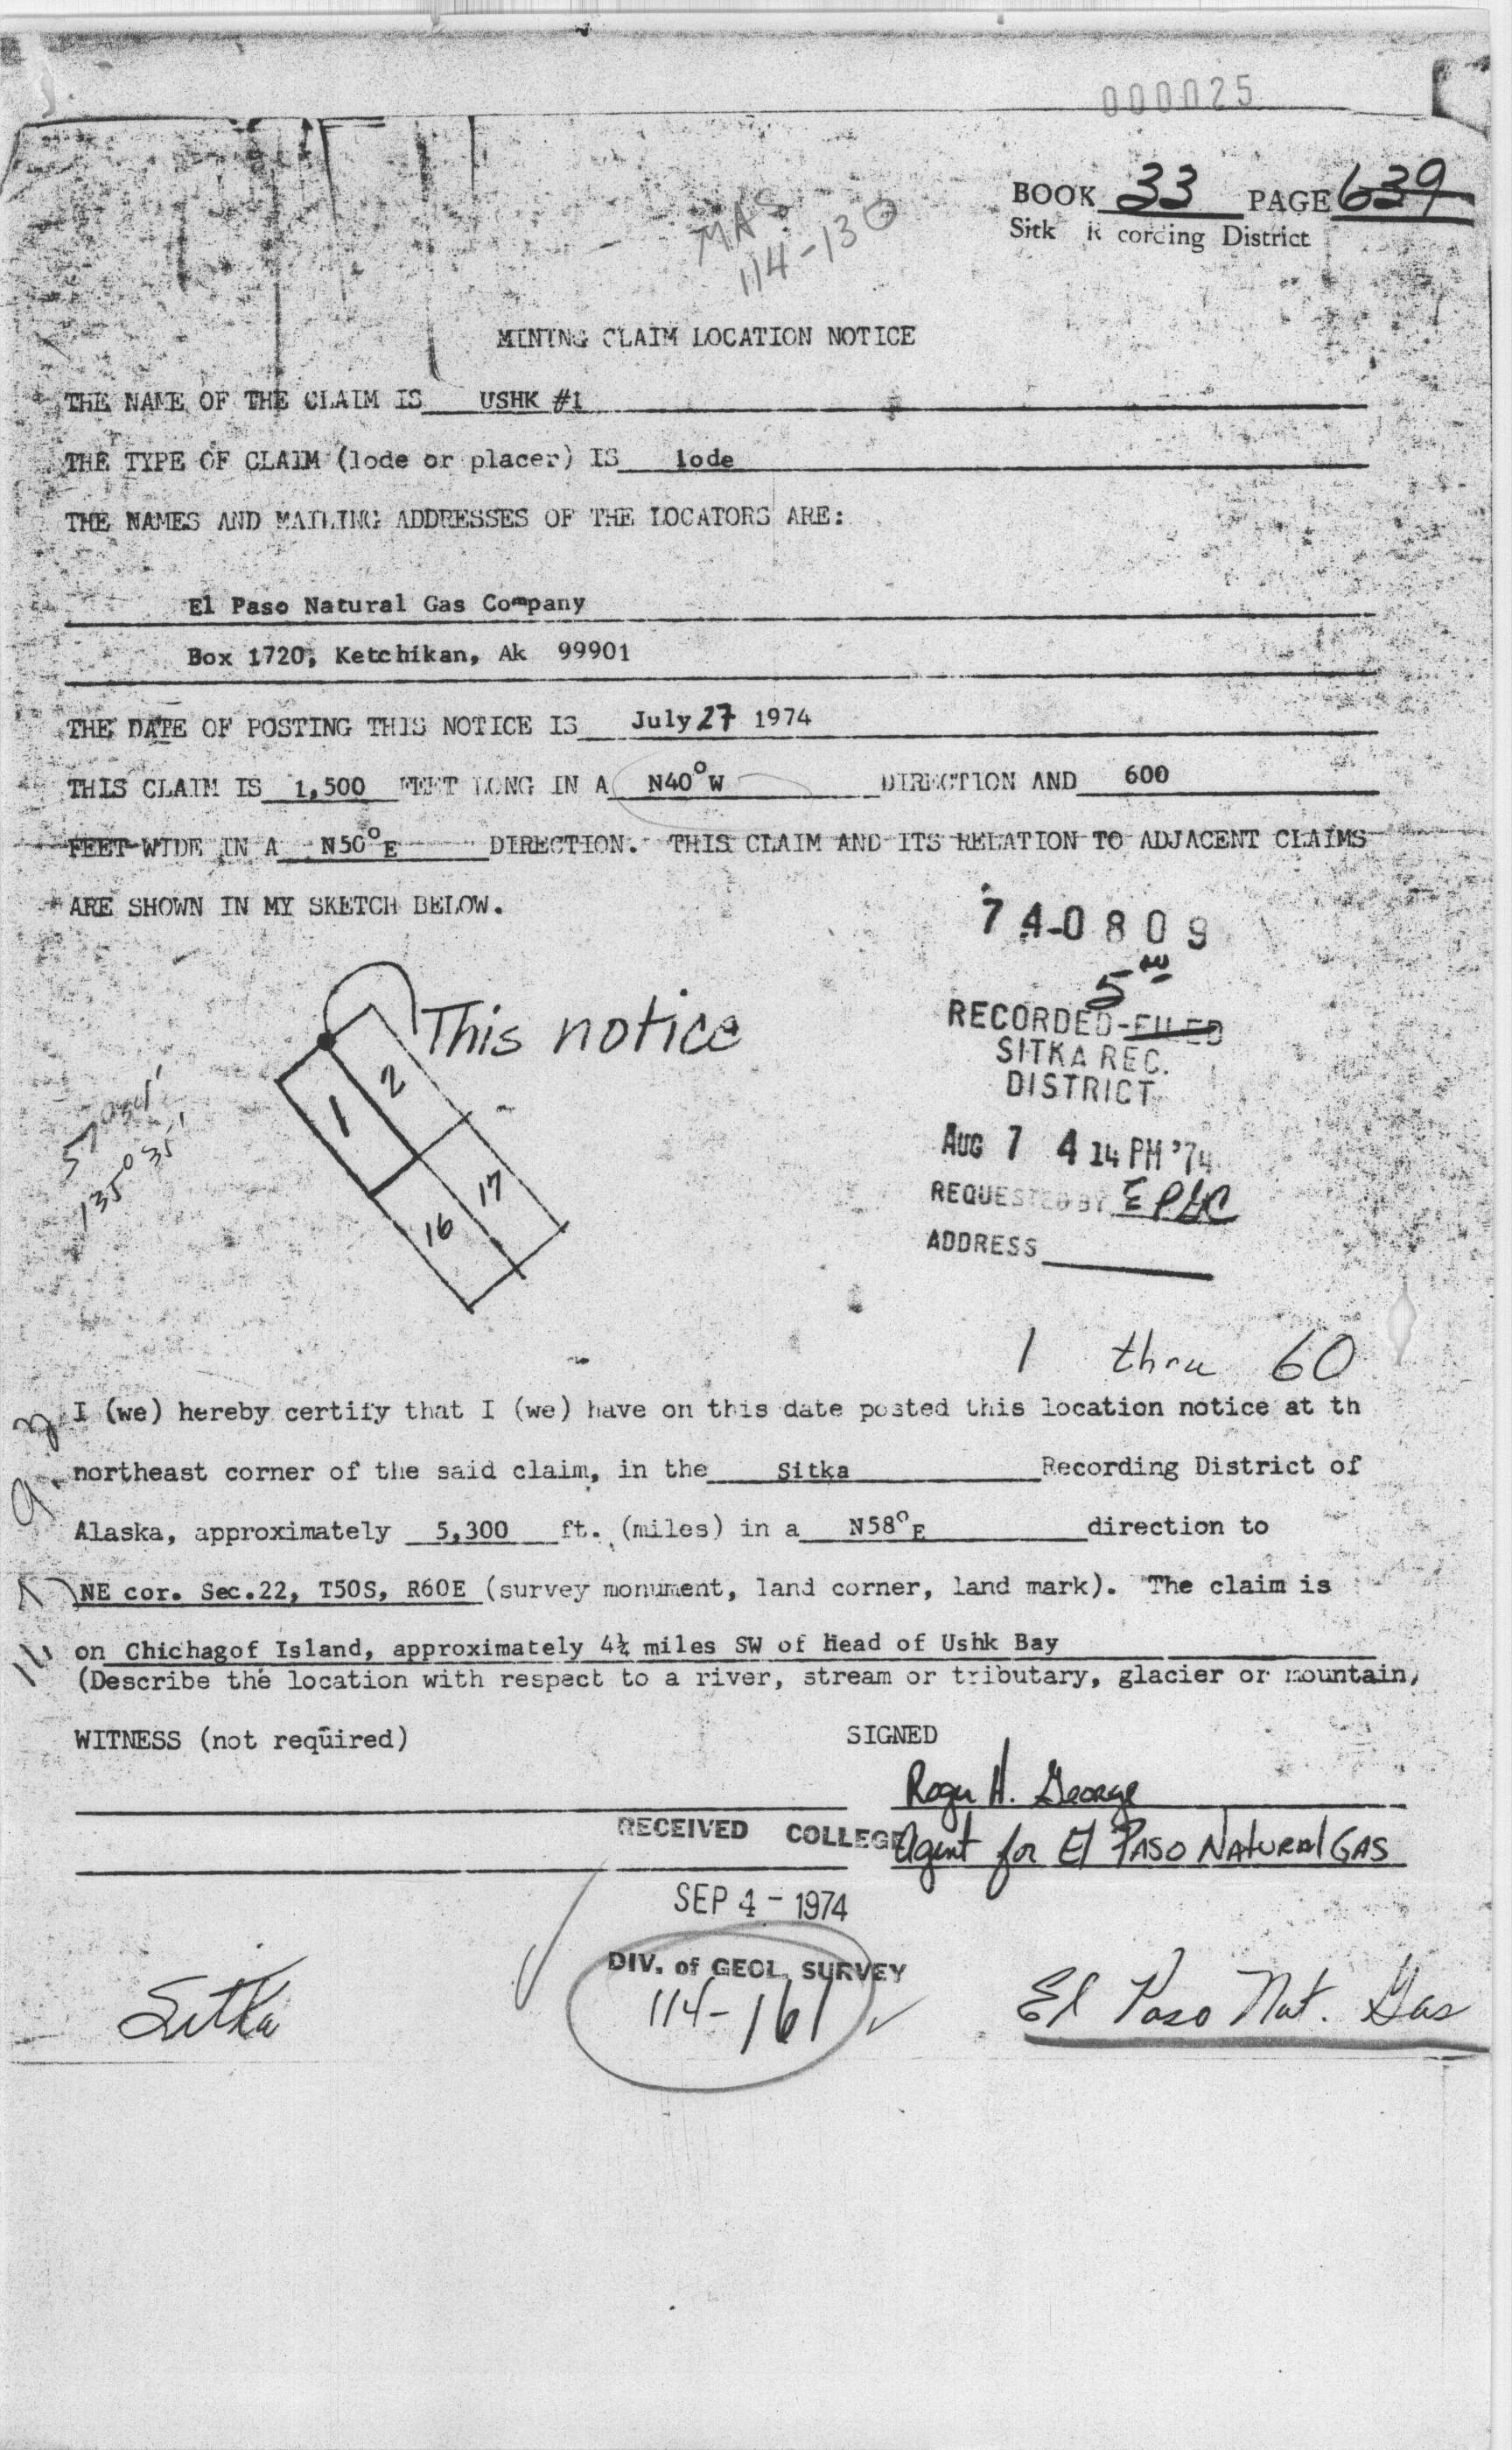 000025
BOOK 33 PAGE 639
Sitk R cording District
MAS
114-130
MINING CLAIM LOCATION NOTICE
THE NAME OF THE CLAIM IS USHK #1
THE TYPE OF CLAIM (lode or placer) IS lode
THE NAMES AND MAILING ADDRESSES OF THE LOCATORS ARE:
El Paso Natural Gas Company
Box 1720, Ketchikan, Ak 99901
THE DATE OF POSTING THIS NOTICE IS July 27 1974
THIS CLAIM IS 1,500 FEET LONG IN A N40°W DIRECTION AND 600
FEET WIDE IN A N50°E DIRECTION. THIS CLAIM AND ITS RELATION TO ADJACENT CLAIMS
ARE SHOWN IN MY SKETCH BELOW.
74-0809
5
RECORDED-FILED
SITKA REC.
DISTRICT
AUG 7 4 14 PM '74
REQUESTED BY
ADDRESS
This notice
1
2
16
17
135°35'
1 thru 60
I (we) hereby certify that I (we) have on this date posted this location notice at th
northeast corner of the said claim, in the Sitka Recording District of
Alaska, approximately 5,300 ft. (miles) in a N58°E direction to
NE cor. Sec.22, T50S, R60E (survey monument, land corner, land mark). The claim is
on Chichagof Island, approximately 4½ miles SW of Head of Ushk Bay
(Describe the location with respect to a river, stream or tributary, glacier or mountain,
WITNESS (not required) SIGNED
Roger H. George
Agent for El PASO NATURAL GAS
RECEIVED COLLEGE
SEP 4 - 1974
DIV. of GEOL. SURVEY
114-161
Sitka
El Paso Nat. Gas